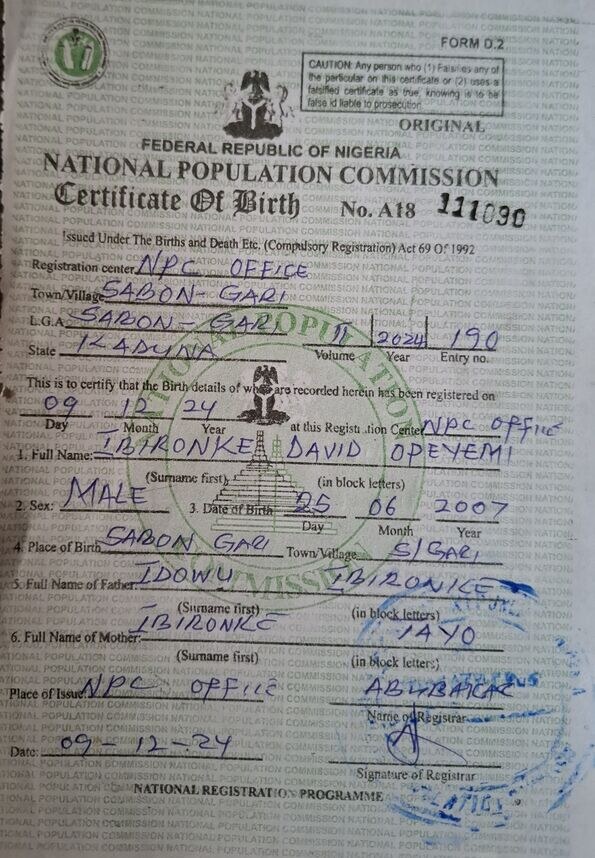 FORM D.2
CAUTION: Any person who (1) Falsifies any of
the particular on this certificate or (2) uses a
falsified certificate as true, knowing is to be
false id liable to prosecution
ORIGINAL
FEDERAL REPUBLIC OF NIGERIA
NATIONAL POPULATION COMMISSION
Certificate Of Birth No. A18 111030
Issued Under The Births and Death Etc. (Compulsory Registration) Act 69 Of 1992
Registration center NPC OFFICE
Town/Village SABON-GARI
L.G.A. SABON-GARI 11 2024 190
State KADUNA Volume Year Entry no.
This is to certify that the Birth details of whom are recorded herein has been registered on
09 12 24 at this Registration Center NPC OFFICE
Day Month Year
1. Full Name: IBIRONKE DAVID OPEYEMI
(Surname first) (in block letters)
2. Sex: MALE 3. Date of Birth 25 06 2007
Day Month Year
4. Place of Birth SABON GARI Town/Village S/GARI
5. Full Name of Father: IDOWU IBIRONKE
(Surname first) (in block letters)
6. Full Name of Mother: IBIRONKE TAYO
(Surname first) (in block letters)
Place of Issue NPC OFFICE ABUBAKAR
Name of Registrar
Date: 09-12-24
Signature of Registrar
NATIONAL REGISTRATION PROGRAMME
NATIONAL POPULATION COMMISSION